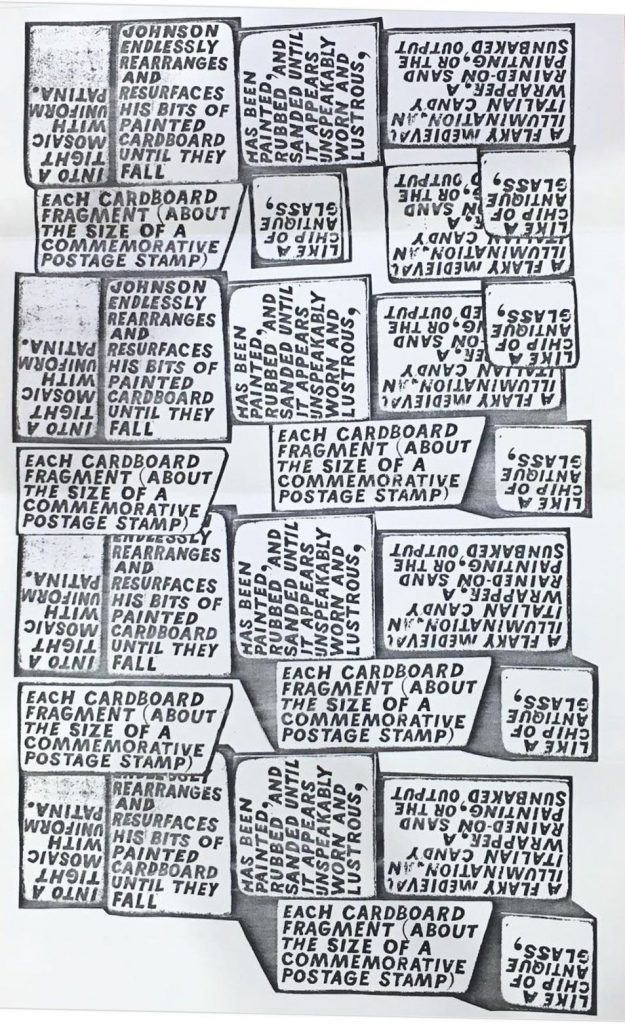 JOHNSON
ENDLESSLY
REARRANGES
AND
RESURFACES
HIS BITS OF
PAINTED
CARDBOARD
UNTIL THEY
FALL
INTO A
TIGHT
MOSAIC
WITH
UNIFORM
PATINA.
EACH CARDBOARD
FRAGMENT (ABOUT
THE SIZE OF A
COMMEMORATIVE
POSTAGE STAMP)
HAS BEEN
PAINTED,
RUBBED, AND
SANDED UNTIL
IT APPEARS
UNSPEAKABLY
WORN AND
LUSTROUS,
LIKE A
CHIP OF
ANTIQUE
GLASS,
A FLAKY MEDIEVAL
ILLUMINATION, AN
ITALIAN CANDY
WRAPPER, A
RAINED-ON SAND
PAINTING, OR THE
SUNBAKED OUTPUT
LIKE A
CHIP OF
ANTIQUE
GLASS,
A FLAKY MEDIEVAL
ILLUMINATION, AN
CANDY
A
SAND
OR THE
OUTPUT
JOHNSON
ENDLESSLY
REARRANGES
AND
RESURFACES
HIS BITS OF
PAINTED
CARDBOARD
UNTIL THEY
FALL
INTO A
TIGHT
MOSAIC
WITH
UNIFORM
PATINA.
EACH CARDBOARD
FRAGMENT (ABOUT
THE SIZE OF A
COMMEMORATIVE
POSTAGE STAMP)
HAS BEEN
PAINTED,
RUBBED, AND
SANDED UNTIL
IT APPEARS
UNSPEAKABLY
WORN AND
LUSTROUS,
LIKE A
CHIP OF
ANTIQUE
GLASS,
A FLAKY MEDIEVAL
ILLUMINATION, AN
CANDY
A
SAND
OR THE
OUTPUT
EACH CARDBOARD
FRAGMENT (ABOUT
THE SIZE OF A
COMMEMORATIVE
POSTAGE STAMP)
LIKE A
CHIP OF
ANTIQUE
GLASS,
ENDLESSLY
REARRANGES
AND
RESURFACES
HIS BITS OF
PAINTED
CARDBOARD
UNTIL THEY
FALL
INTO A
TIGHT
MOSAIC
WITH
UNIFORM
PATINA.
HAS BEEN
PAINTED,
RUBBED, AND
SANDED UNTIL
IT APPEARS
UNSPEAKABLY
WORN AND
LUSTROUS,
A FLAKY MEDIEVAL
ILLUMINATION, AN
ITALIAN CANDY
WRAPPER, A
RAINED-ON SAND
PAINTING, OR THE
SUNBAKED OUTPUT
EACH CARDBOARD
FRAGMENT (ABOUT
THE SIZE OF A
COMMEMORATIVE
POSTAGE STAMP)
EACH CARDBOARD
FRAGMENT (ABOUT
THE SIZE OF A
COMMEMORATIVE
POSTAGE STAMP)
LIKE A
CHIP OF
ANTIQUE
GLASS,
ENDLESSLY
REARRANGES
AND
RESURFACES
HIS BITS OF
PAINTED
CARDBOARD
UNTIL THEY
FALL
INTO A
TIGHT
MOSAIC
WITH
UNIFORM
PATINA.
HAS BEEN
PAINTED,
RUBBED, AND
SANDED UNTIL
IT APPEARS
UNSPEAKABLY
WORN AND
LUSTROUS,
A FLAKY MEDIEVAL
ILLUMINATION, AN
ITALIAN CANDY
WRAPPER, A
RAINED-ON SAND
PAINTING, OR THE
SUNBAKED OUTPUT
EACH CARDBOARD
FRAGMENT (ABOUT
THE SIZE OF A
COMMEMORATIVE
POSTAGE STAMP)
LIKE A
CHIP OF
ANTIQUE
GLASS,